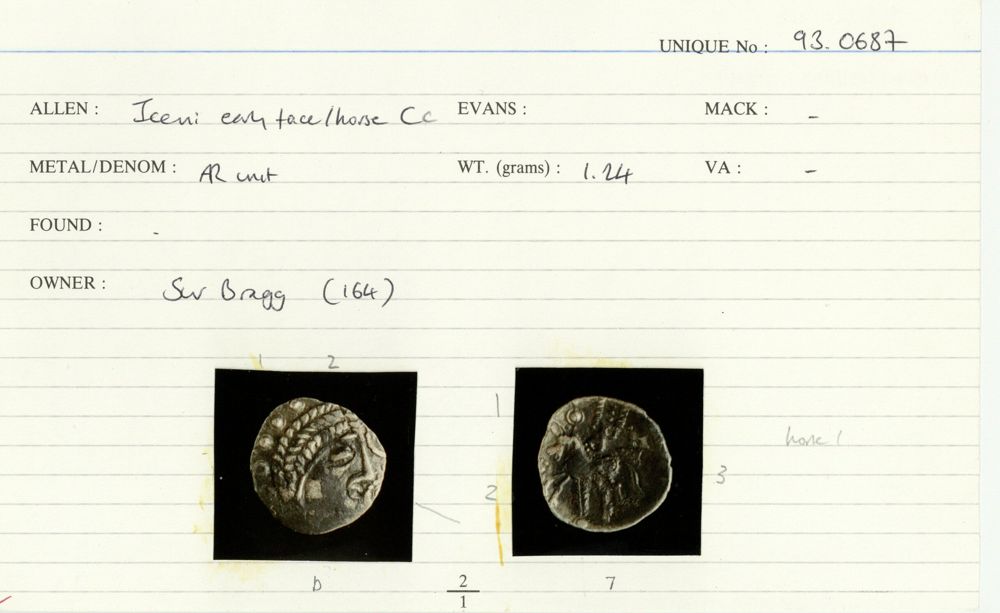 UNIQUE No : 93.0687
ALLEN : Iceni early face/horse Cc EVANS : MACK : -
METAL/DENOM : AR unit WT. (grams) : 1.24 VA : -
FOUND : -
OWNER : Bragg (164)
1 2
1
horse 1
2 3
b 2/1 7